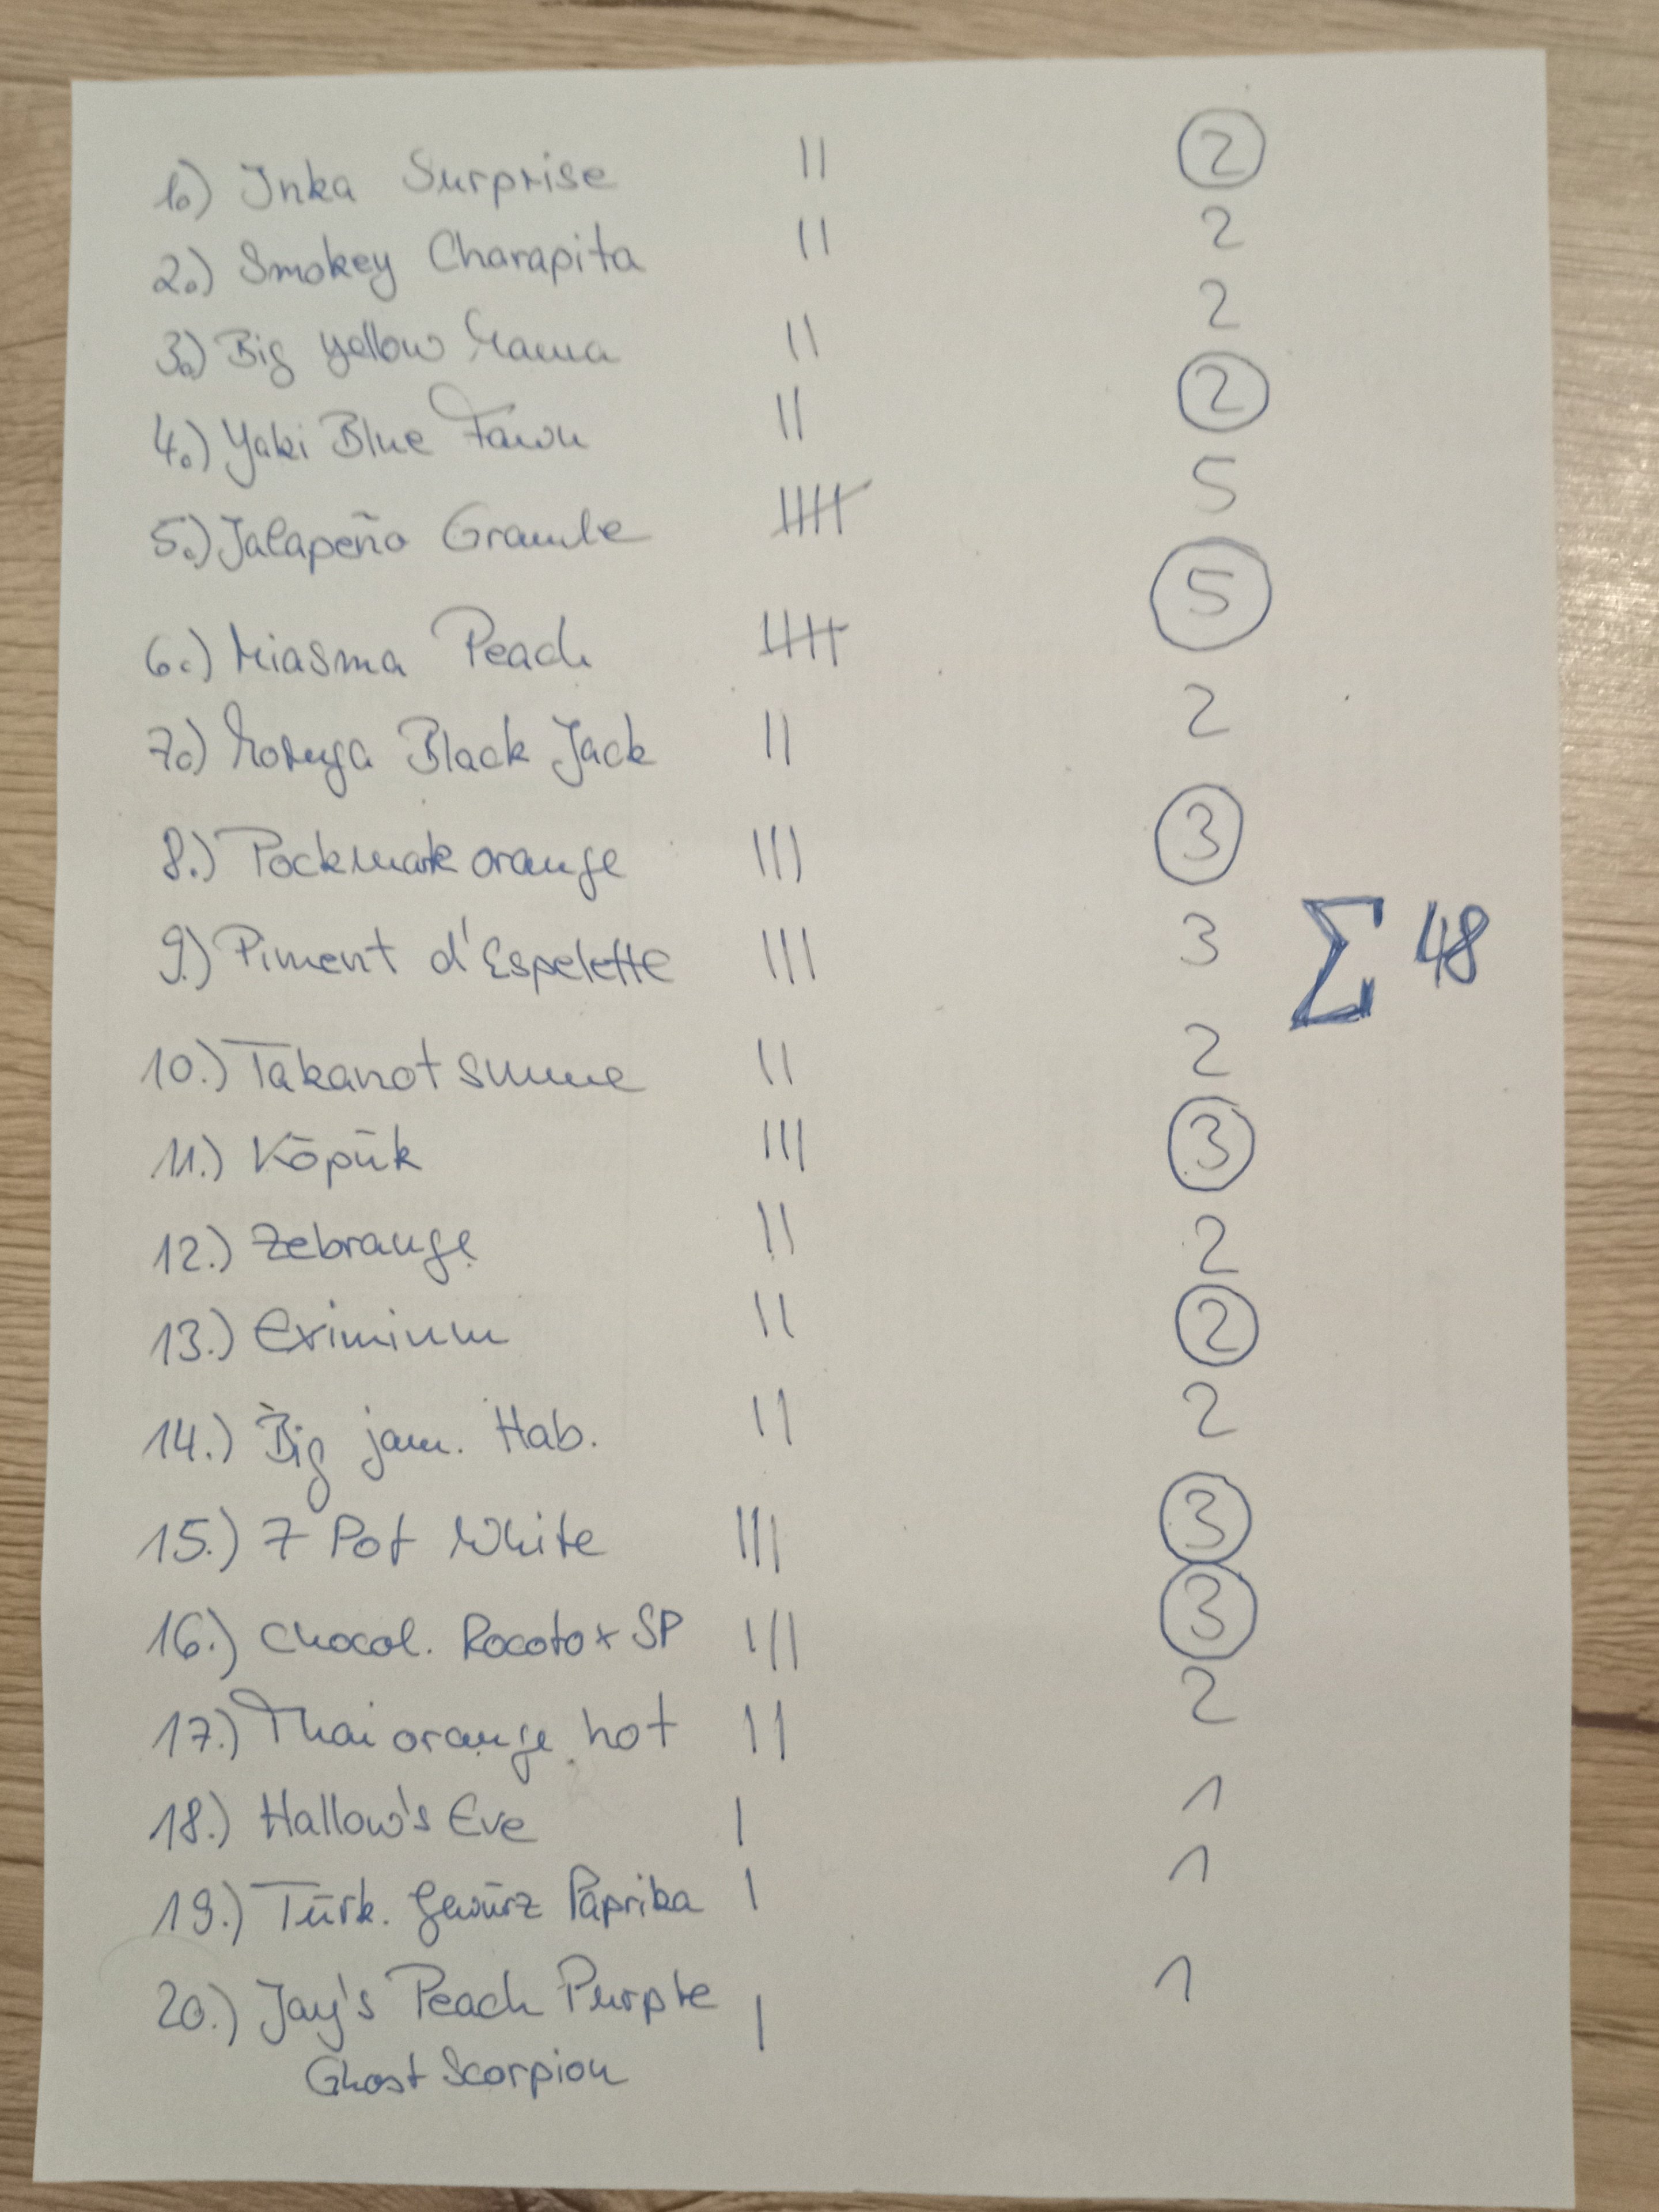 1.) Inka Surprise || 2
2.) Smokey Charapita || 2
3.) Big yellow Mama || 2
4.) Yaki Blue Fawn || 2
5.) Jalapeño Grande 5
6.) Miasma Peach 5
7.) Black Jack || 2
8.) Pockmark orange ||| 3
9.) Piment d'Espelette ||| 3
∑ 48
10.) Takanotsume || 2
11.) Köpük ||| 3
12.) Zebrange || 2
13.) Eximium || 2
14.) Big jam. Hab. || 2
15.) 7 Pot White ||| 3
16.) Chocol. Rocoto x SP ||| 3
17.) Thai orange hot || 2
18.) Hallow's Eve | 1
19.) Türk. Gewürz Paprika | 1
20.) Jay's Peach Purple | 1
Ghost Scorpion